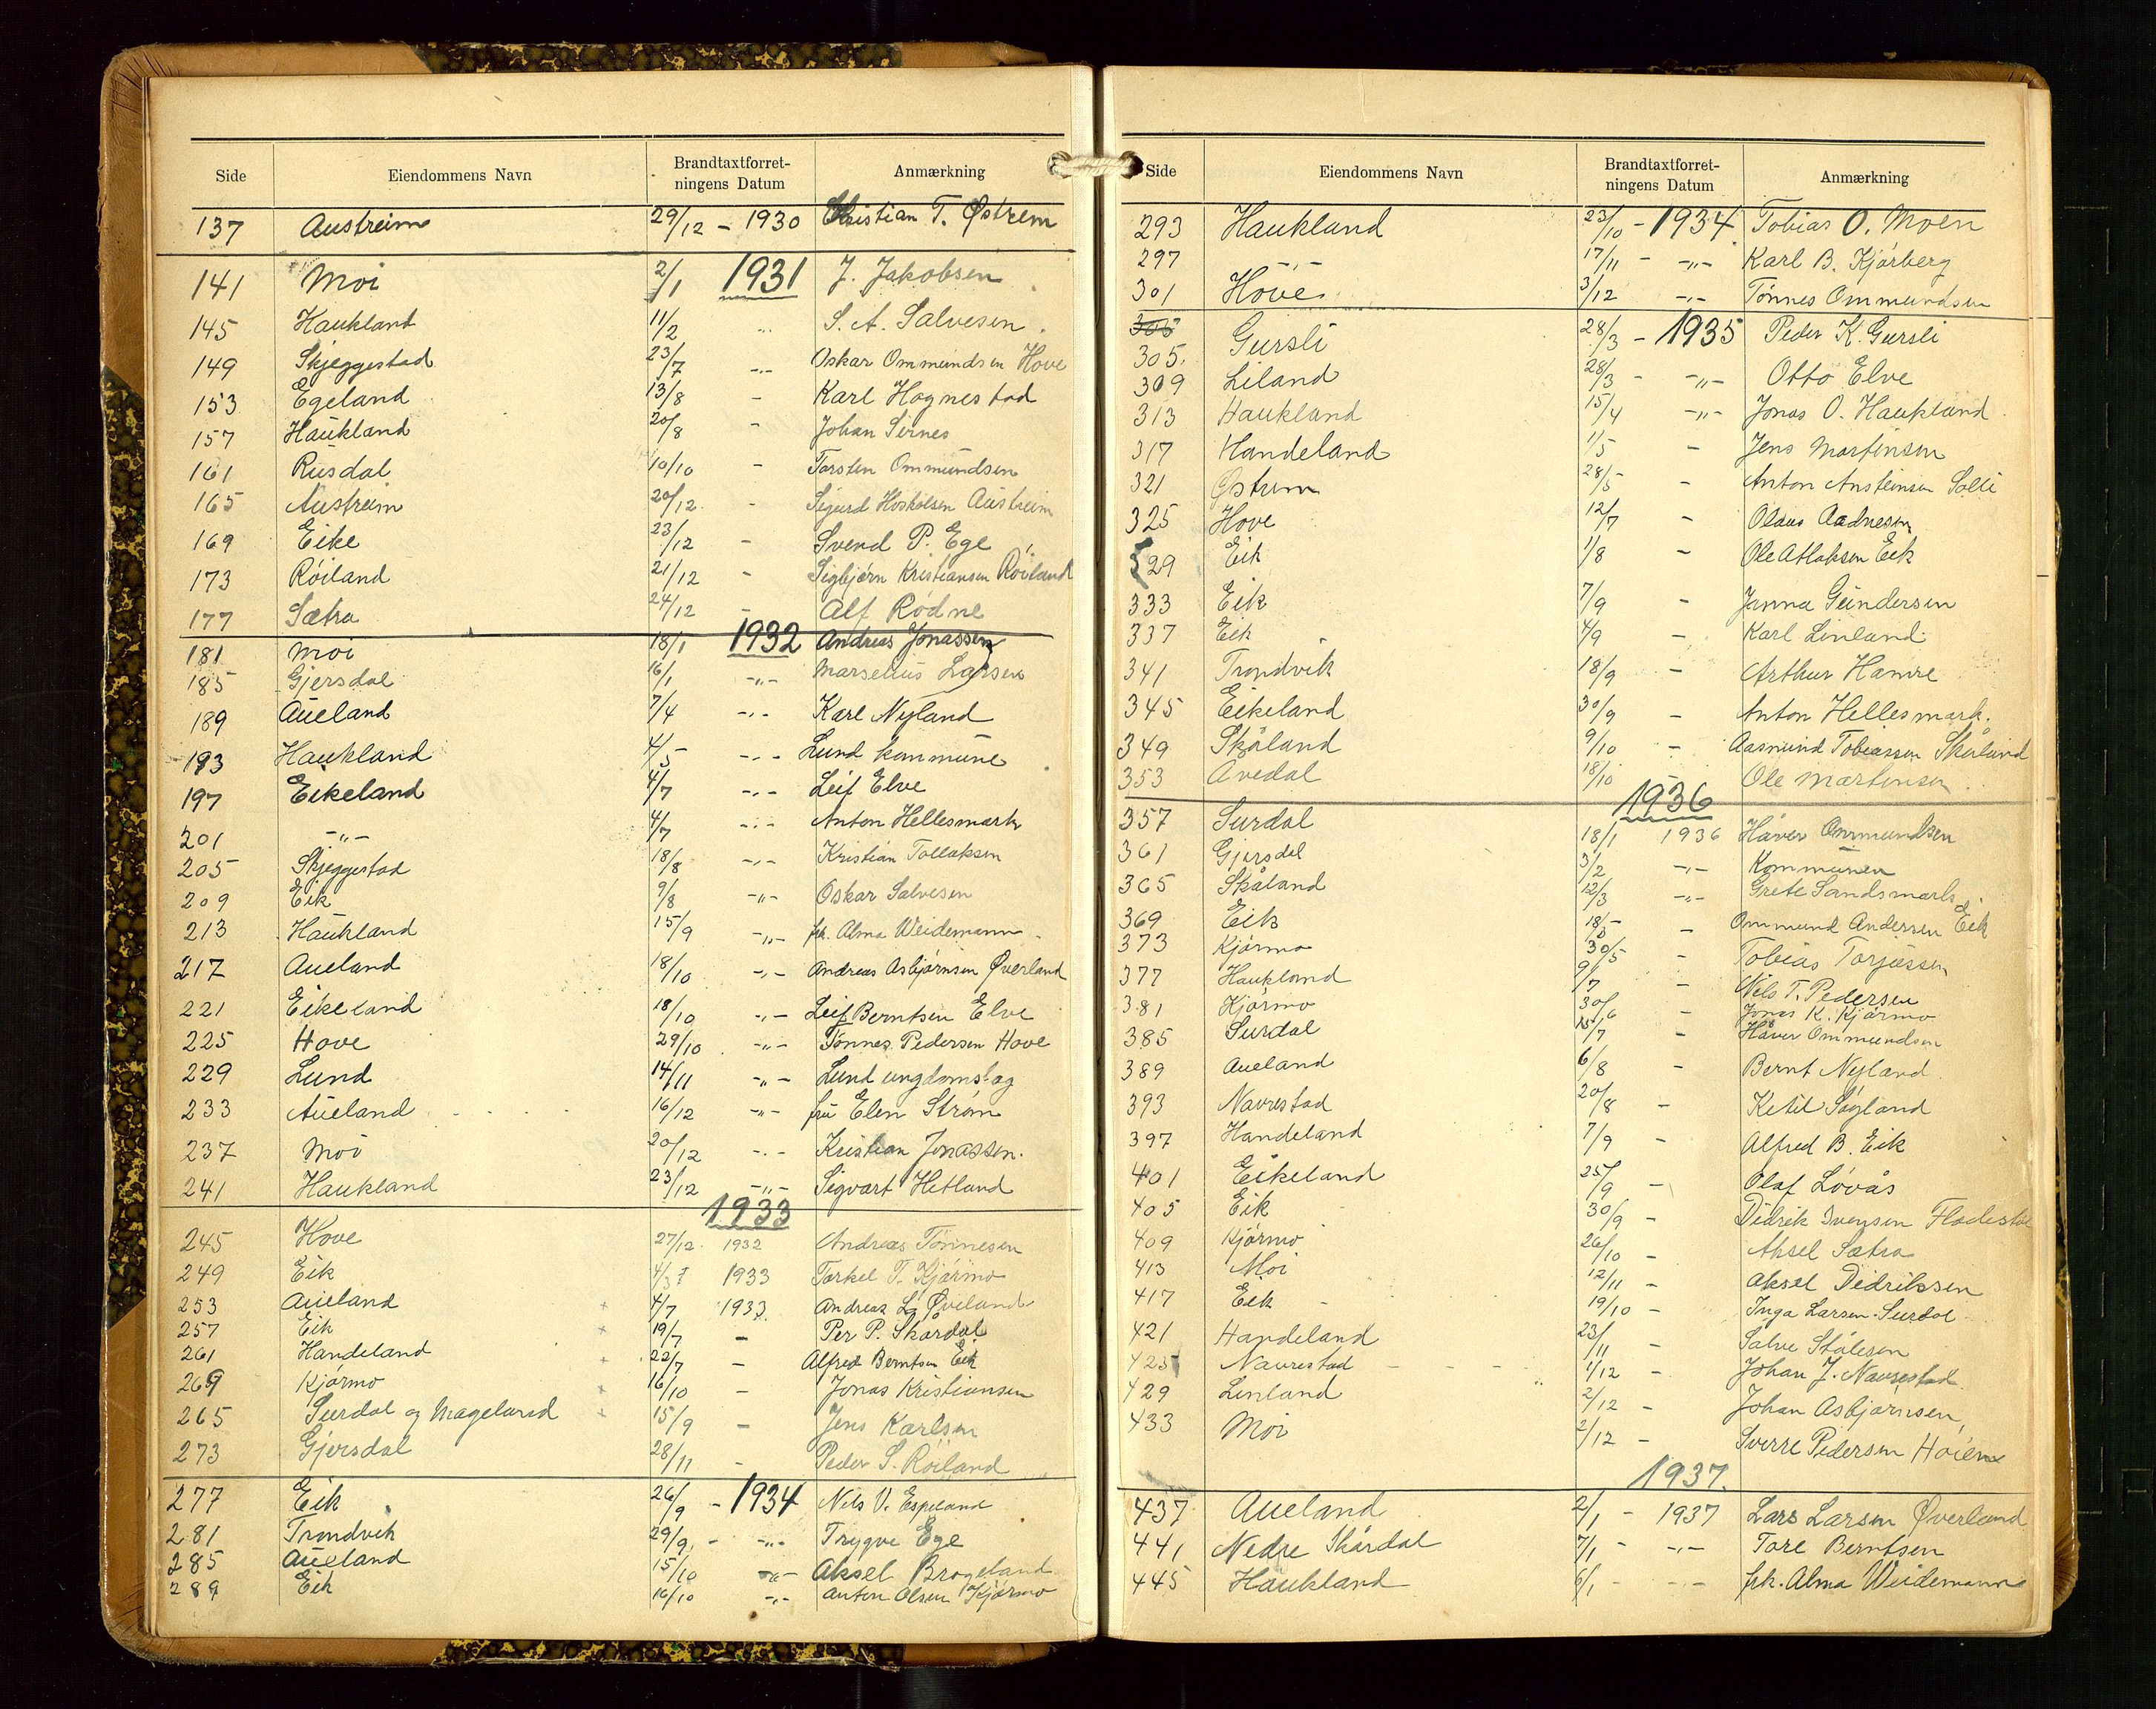 Side Eiendommens Navn Brandtaxtforret-ningens Datum Anmærkning
137 Austreim 29/12 - 1930 Christian T. Østrem
141 Moi 2/1 1931 J. Jakobsen
145 Haukland 11/2 " S. A. Salvesen.
149 Skjeggestad 23/7 -"- Oskar Ommundsen Hove
153 Egeland 13/8 - Karl Hognestad
157 Haukland 20/8 - Johan Sirnes
161 Rusdal 10/10 - Torsten Ommundsen
165 Austreim 20/12 - Sigurd Hoskolsen Austreim
169 Eike 23/12 - Svend P. Ege
173 Röiland 21/12 - Sigbjörn Kristiansen Röiland
177 Sætra 24/12 - Alf Rödne
181 Moi 18/1 1932 Andreas Jonassen
185 Gjersdal 16/1 -"- Marselius Larsen
189 Aueland 7/4 -"- Karl Nyland
193 Haukland 4/5 -"- Lund kommune
197 Eikeland 4/7 -"- Leif Elve
201 -"- 4/7 -"- Anton Hellesmark
205 Skjeggestad 18/8 -"- Kristian Tollaksen
209 Eik 9/8 -"- Oskar Salvesen
213 Haukland 15/9 -"- frk. Alma Weidemann
217 Aueland 18/10 -"- Andreas Asbjørnsen Øverland
221 Eikeland 18/10 -"- Leif Berntsen Elve
225 Hove 29/10 -"- Tønnes Pedersen Hove
229 Lund 14/11 -"- Lund ungdomslag
233 Aueland 16/12 -"- fru Elen Strøm
237 Moi 20/12 -"- Kristian Jonassen.
241 Haukland 23/12 -"- Sigvart Hetland
1933
245 Hove 27/12 1932 Andreas Tönnesen
249 Eik 4/7 1933 Torkel T. Kjörmo
253 Aueland 4/7 1933 Andreas L. Øveland
257 Eik 19/7 - Per P. Skårdal
261 Handeland 22/7 - Alfred Berntsen Eik
269 Kjörmo 16/10 - Jonas Kristiansen
265 Surdal og Mageland 15/9 - Jens Karlsen
273 Gjersdal 28/11 - Peder S. Röiland
277 Eik 26/9 - 1934 Nils V. Espeland
281 Trondvik 29/9 - -"- Trygve Ege
285 Aueland 15/10 -"- Aksel Brogeland
289 Eik 16/10 -"- Anton Olsen Kjörmo
Side Eiendommens Navn Brandtaxtforret-ningens Datum Anmærkning
293 Haukland 23/10 - 1934 Tobias O. Moen
297 -"- 17/11 - -"- Karl B. Kjörberg
301 Hove 3/12 -"- Tönnes Ommundsen
305. Gursli 28/3 - 1935 Peder K. Gursli
309 Liland 28/3 - -"- Otto Elve
313 Haukland 15/4 -"- Jonas O. Haukland.
317 Handeland 1/5 - Jens Martinsen
321 Østrem 28/5 - Anton Ansteinsen Solli
325 Hove 12/7 - Olaus Aadnesen
329 Eik 1/8 - Ole Atlaksen Eik
333 Eik 7/9 - Janna Gundersen
337 Eik 4/9 - Karl Linland
341 Trondvik 18/9 - Arthur Hamre
345 Eikeland 30/9 - Anton Hellesmark.
349 Skåland 9/10 - Aasmund Tobiassen Skåland
353 Avedal 18/10 - Ole Martinsen
1936
357 Surdal 18/1 1936 Håver Ommundsen
361 Gjersdal 3/2 -"- Kommunen
365 Skåland 12/3 -"- Grete Sandsmark
369 Eik 18/5 - Ommund Andersen Eik
373 Kjörmo 30/5 - Tobias Torjussen
377 Haukland 9/7 - Nils T. Pedersen
381 Kjörmo 30/6 - Jonas K. Kjörmo
385 Surdal 15/7 - Håver Ommundsen
389 Aueland 6/8 - Bernt Nyland
393 Navrestad 20/8 - Ketil Søyland
397 Handeland 7/9 - Alfred B. Eik
401 Eikeland 25/9 - Olaf Lövås
405 Eik 30/9 - Didrik Ivensen
409 Kjörmo 26/10 - Aksel Sætra
413 Moi 12/11 - Aksel Didriksen
417 Eik 19/10 - Inga Larsen Surdal
421 Handeland 23/11 - Salve Stålesen
425 Navrestad 1/12 - Johan J. Navrestad
429 Linland 2/12 - Johan Asbjørnsen
433 Moi 2/12 - Sverre Pedersen
1937.
437 Aueland 2/1 - 1937 Lars Larsen Øverland
441 Nedre Skårdal 7/1 - -"- Tore Berntsen
445 Haukland 6/1 - -"- frk. Alma Weidemann